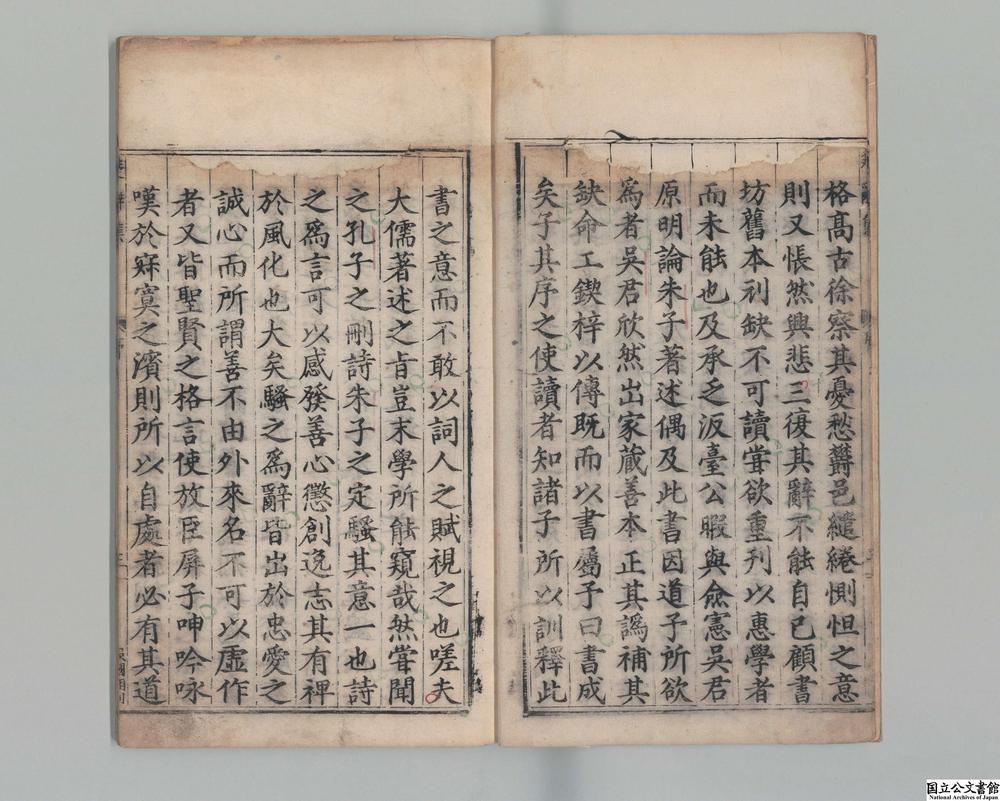 格高古徐察其憂愁欝邑繾綣惻怛之意
則又悵然興悲三復其辭不能自已顧書
坊舊本刓缺不可讀嘗欲重刊以惠學者
而未能也及承乏汳臺公暇與僉憲吳君
原明論朱子著述偶及此書因道予所欲
爲者吳君欣然出家藏善本正其譌補其
缺命工鍥梓以傳既而以書屬予曰書成
矣子其序之使讀者知諸子所以訓釋此
書之意而不敢以詞人之賦視之也嗟夫
大儒著述之旨豈末學所能窺哉然嘗聞
之孔子之刪詩朱子之定騷其意一也詩
之爲言可以感發善心懲創逸志其有裨
於風化也大矣騷之爲辭皆出於忠愛之
誠心而所謂善不由外來名不可以虛作
者又皆聖賢之格言使放臣屏子呻吟咏
嘆於寂寞之濱則所以自處者必有其道
国立公文書館
National Archives of Japan